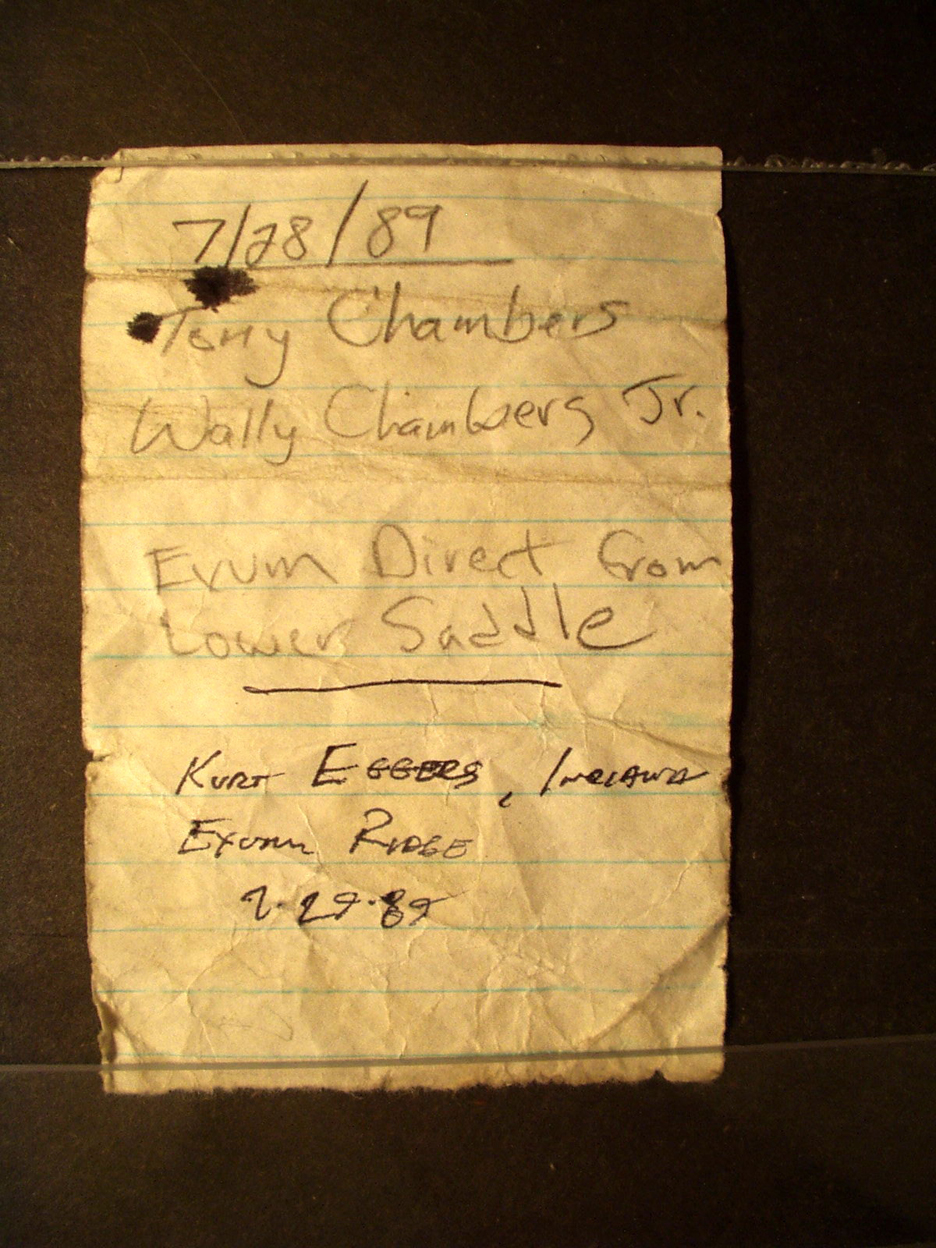 7/28/89
Tony Chambers
Wally Chambers Jr.
Exum Direct from
Lower Saddle
Kurt Eggers,
Exum Ridge
7.29.89